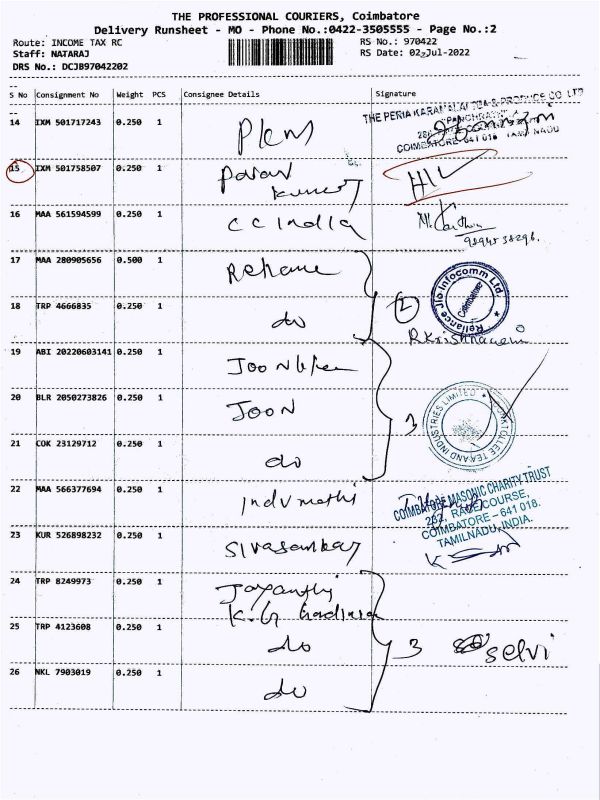 THE PROFESSIONAL COURIERS, Coimbatore
Delivery Runsheet - MO - Phone No.:0422-3505555 - Page No.:2
Route: INCOME TAX RC
RS No.: 970422
Staff: NATARAJ
RS Date: 02-Jul-2022
DRS No.: DCJB97042202
S No Consignment No Weight PCS Consignee Details Signature
14 IXM 501717243 0.250 1
THE PERIA KARAMALAI TEA & PRODUCE CO. LTD
COIMBATORE-641 018 TAMIL NADU
15 IXM 501758507 0.250 1 Pavan
kumar
16 MAA 561594599 0.250 1 CC India
17 MAA 280905656 0.500 1 Reliance
Reliance Jio Infocomm Ltd.
Coimbatore
18 TRP 4666835 0.250 1 do
2
19 ABI 20220603141 0.250 1
20 BLR 2050273826 0.250 1 JOON
3
INDUSTRIES LIMITED
21 COK 23129712 0.250 1 do
22 MAA 566377694 0.250 1 Indumathi
COIMBATORE MASONIC CHARITY TRUST
262, RACE COURSE,
COIMBATORE - 641 018.
TAMILNADU, INDIA.
23 KUR 526898232 0.250 1 Sivasankar
24 TRP 8249973 0.250 1 Jayanthi
K.G
25 TRP 4123608 0.250 1 do
3 selvi
26 NKL 7903019 0.250 1 do